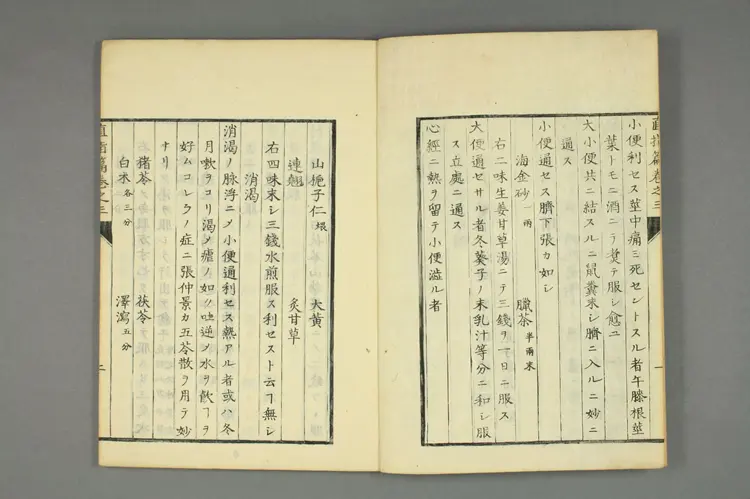 直指篇卷之三
小便利セス莖中痛ミ死セントスル者牛膝根莖
葉トモニ酒ニテ煑テ服シ愈ユ
大小便共ニ結スルニ鼠糞末シ臍ニ入ルニ妙ニ
通ス
小便通セス臍下張カ如シ
海金砂一兩 臘茶半兩末
右二味生姜甘草湯ニテ三錢ヲ一日ニ服ス
大便通セサル者冬葵子ノ末乳汁等分ニ和シ服
ス立處ニ通ス
心經ニ熱ヲ留テ小便澁ル者
一
山梔子仁 大黃
連翹 炙甘草
右四味末シ三錢水煎服ス利セスト云ヿ無シ
消渴
消渴ノ脉浮ニメ小便通利セス熱アル者或ハ冬
月嗽ヲコリ渴メ瘧ノ如ク吐逆メ水ヲ飮ヿヲ
好ムコレラノ症ニ張仲景カ五苓散ヲ用テ妙
ナリ
猪苓 茯苓
白朮各三分 澤瀉五分
直指篇卷之三
二